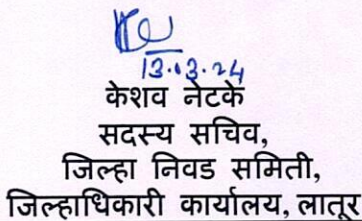 13.03.24
केशव नेटके
सदस्य सचिव,
जिल्हा निवड समिती,
जिल्हाधिकारी कार्यालय, लातूर